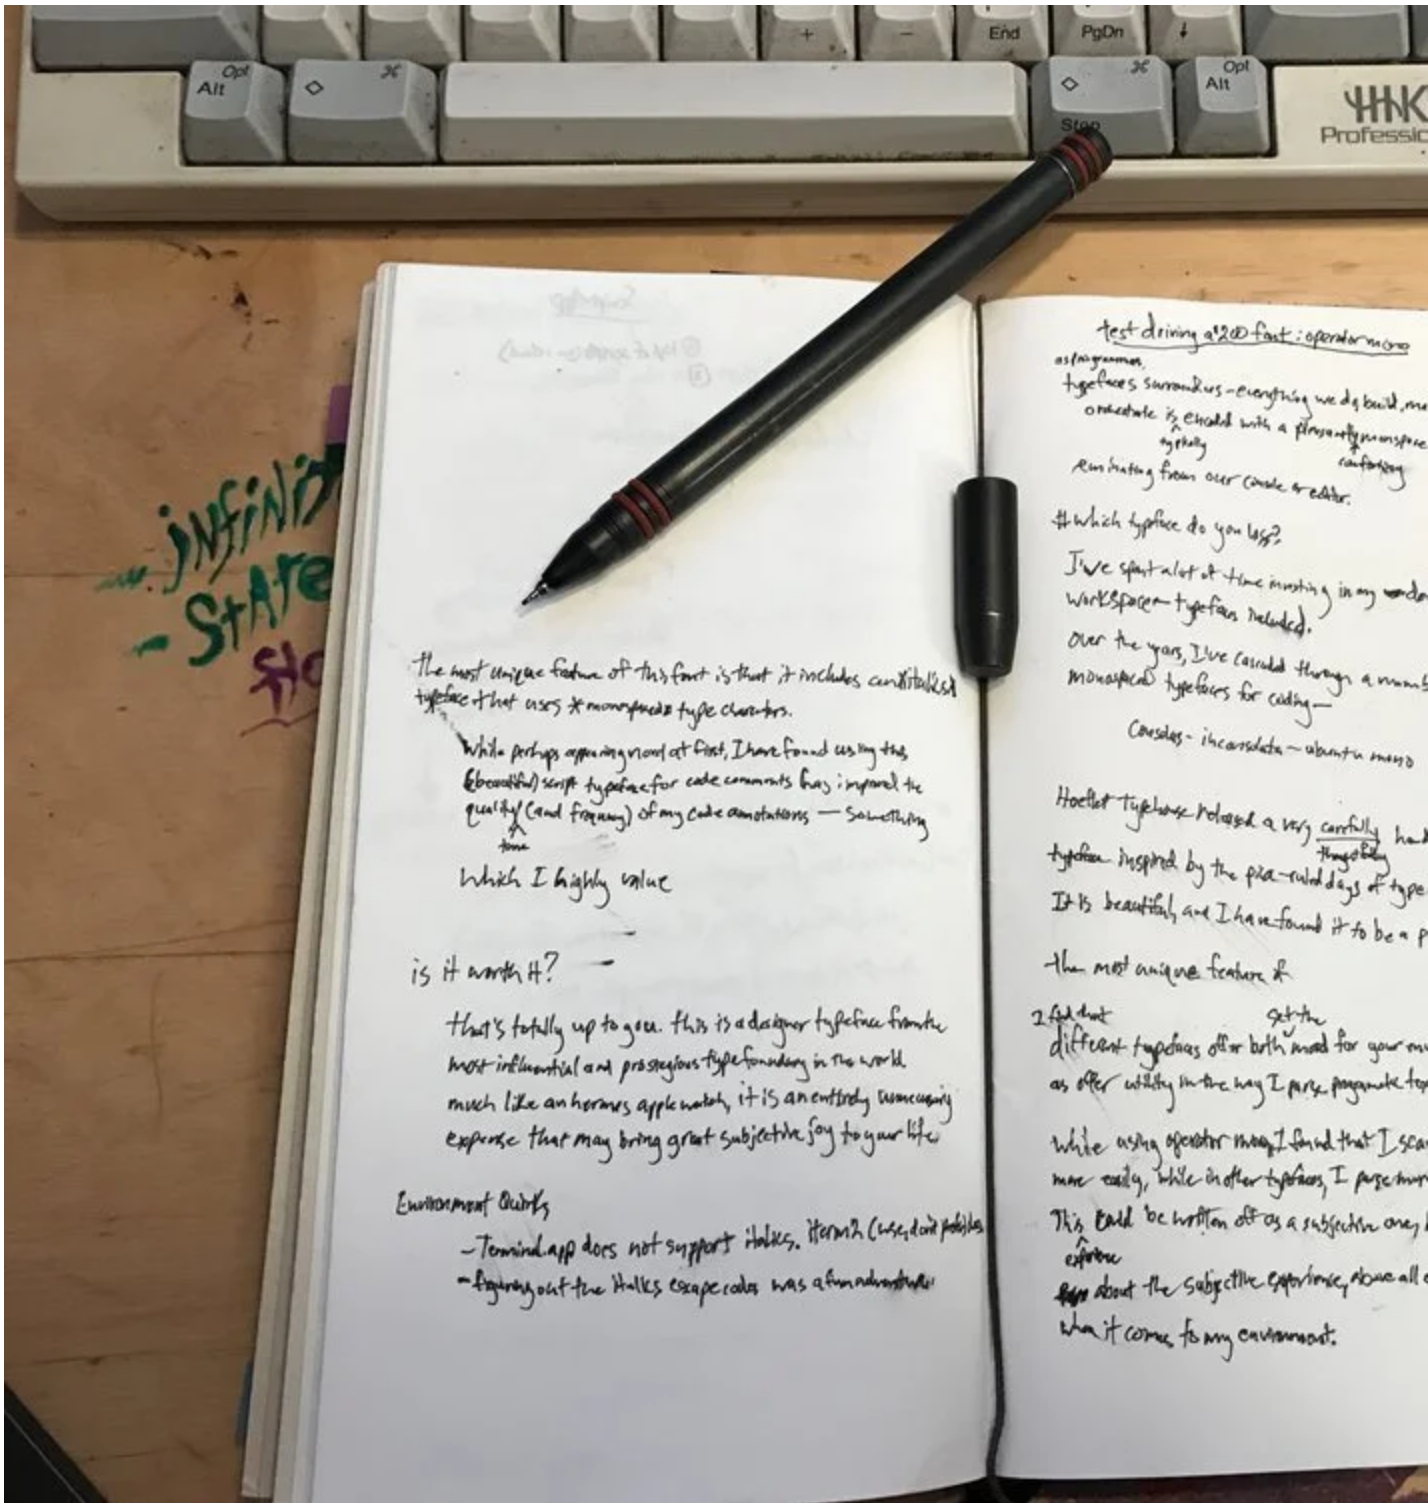 +
-
End
PgDn
↓
Opt
Alt
◇ ⌘
◇ ⌘
Stop
Opt
Alt
HHK
Professio
infinit
State
Sto
The most unique feature of this font is that it includes an italics
typeface that uses * monospaced type characters.
While perhaps appearing novel at first, I have found using this
(beautiful) script typeface for code comments has improved the
quality (and frequency) of my code annotations — something
tone
which I highly value
is it worth it?
that's totally up to you. this is a designer typeface from the
most influential and prestegious type foundary in the world
much like an hermes apple watch, it is an entirely unnecessary
expense that may bring great subjective joy to your life
Environment Quirks
- Terminal.app does not support italics. iterm2 (use, does
- figuring out the italics escape codes was a fun adventure
test driving a $200 font: operator mono
as programmers,
typefaces surround us - everything we do, build,
orchestrate is encoded with a pleasantly monospace
typically
comforting
eminating from our console or editor.
# which typeface do you use?
I've spent a lot of time investing in my
workspace — typefaces included.
over the years, I've cascaded through a numb
monospaced typefaces for coding —
Consolas - inconsolata - ubuntu mono
Hoefler Typehouse released a very carefully
thoughtfully
typeface inspired by the pica-ruled days of type
It is beautiful, and I have found it to be a p
the most unique feature of
I find that
set the
different typefaces offer both mood for your
as offer utility in the way I parse
While using operator mono, I found that I sca
more easily, while in other typefaces, I parse mor
This could be written off as a subjective one,
experience
about the subjective experience, above all
when it comes to my environment.